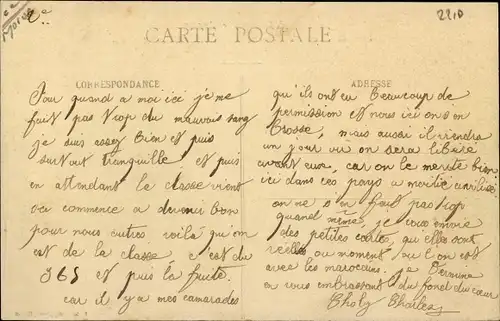 2e
2210
CARTE POSTALE
CORRESPONDANCE
ADRESSE
Pour quand a moi ici je me
fait pas trop du mauvais sang
je suis assez bien et puis
surtout tranquille et puis
en attendant la classe vient
ca commence a devenir bon
pour nous autres voila qu'on
est de la classe c est du
365 et puis la fuite
car il y a mes camarades
qu'ils ont eu beaucoup de
permission et nous ici on s en
brosse, mais aussi il viendra
un jour ou on sera liberé
avant eux, car on le merite bien
ici dans ces pays a moitié civilisé
on ne s en fait pas trop
quand même, je vous envoie
des petites cartes, qu'elles sont
réelles au moment ou l on est
avec les marocains. Je termine
en vous embrassant du fond du coeur
Charles